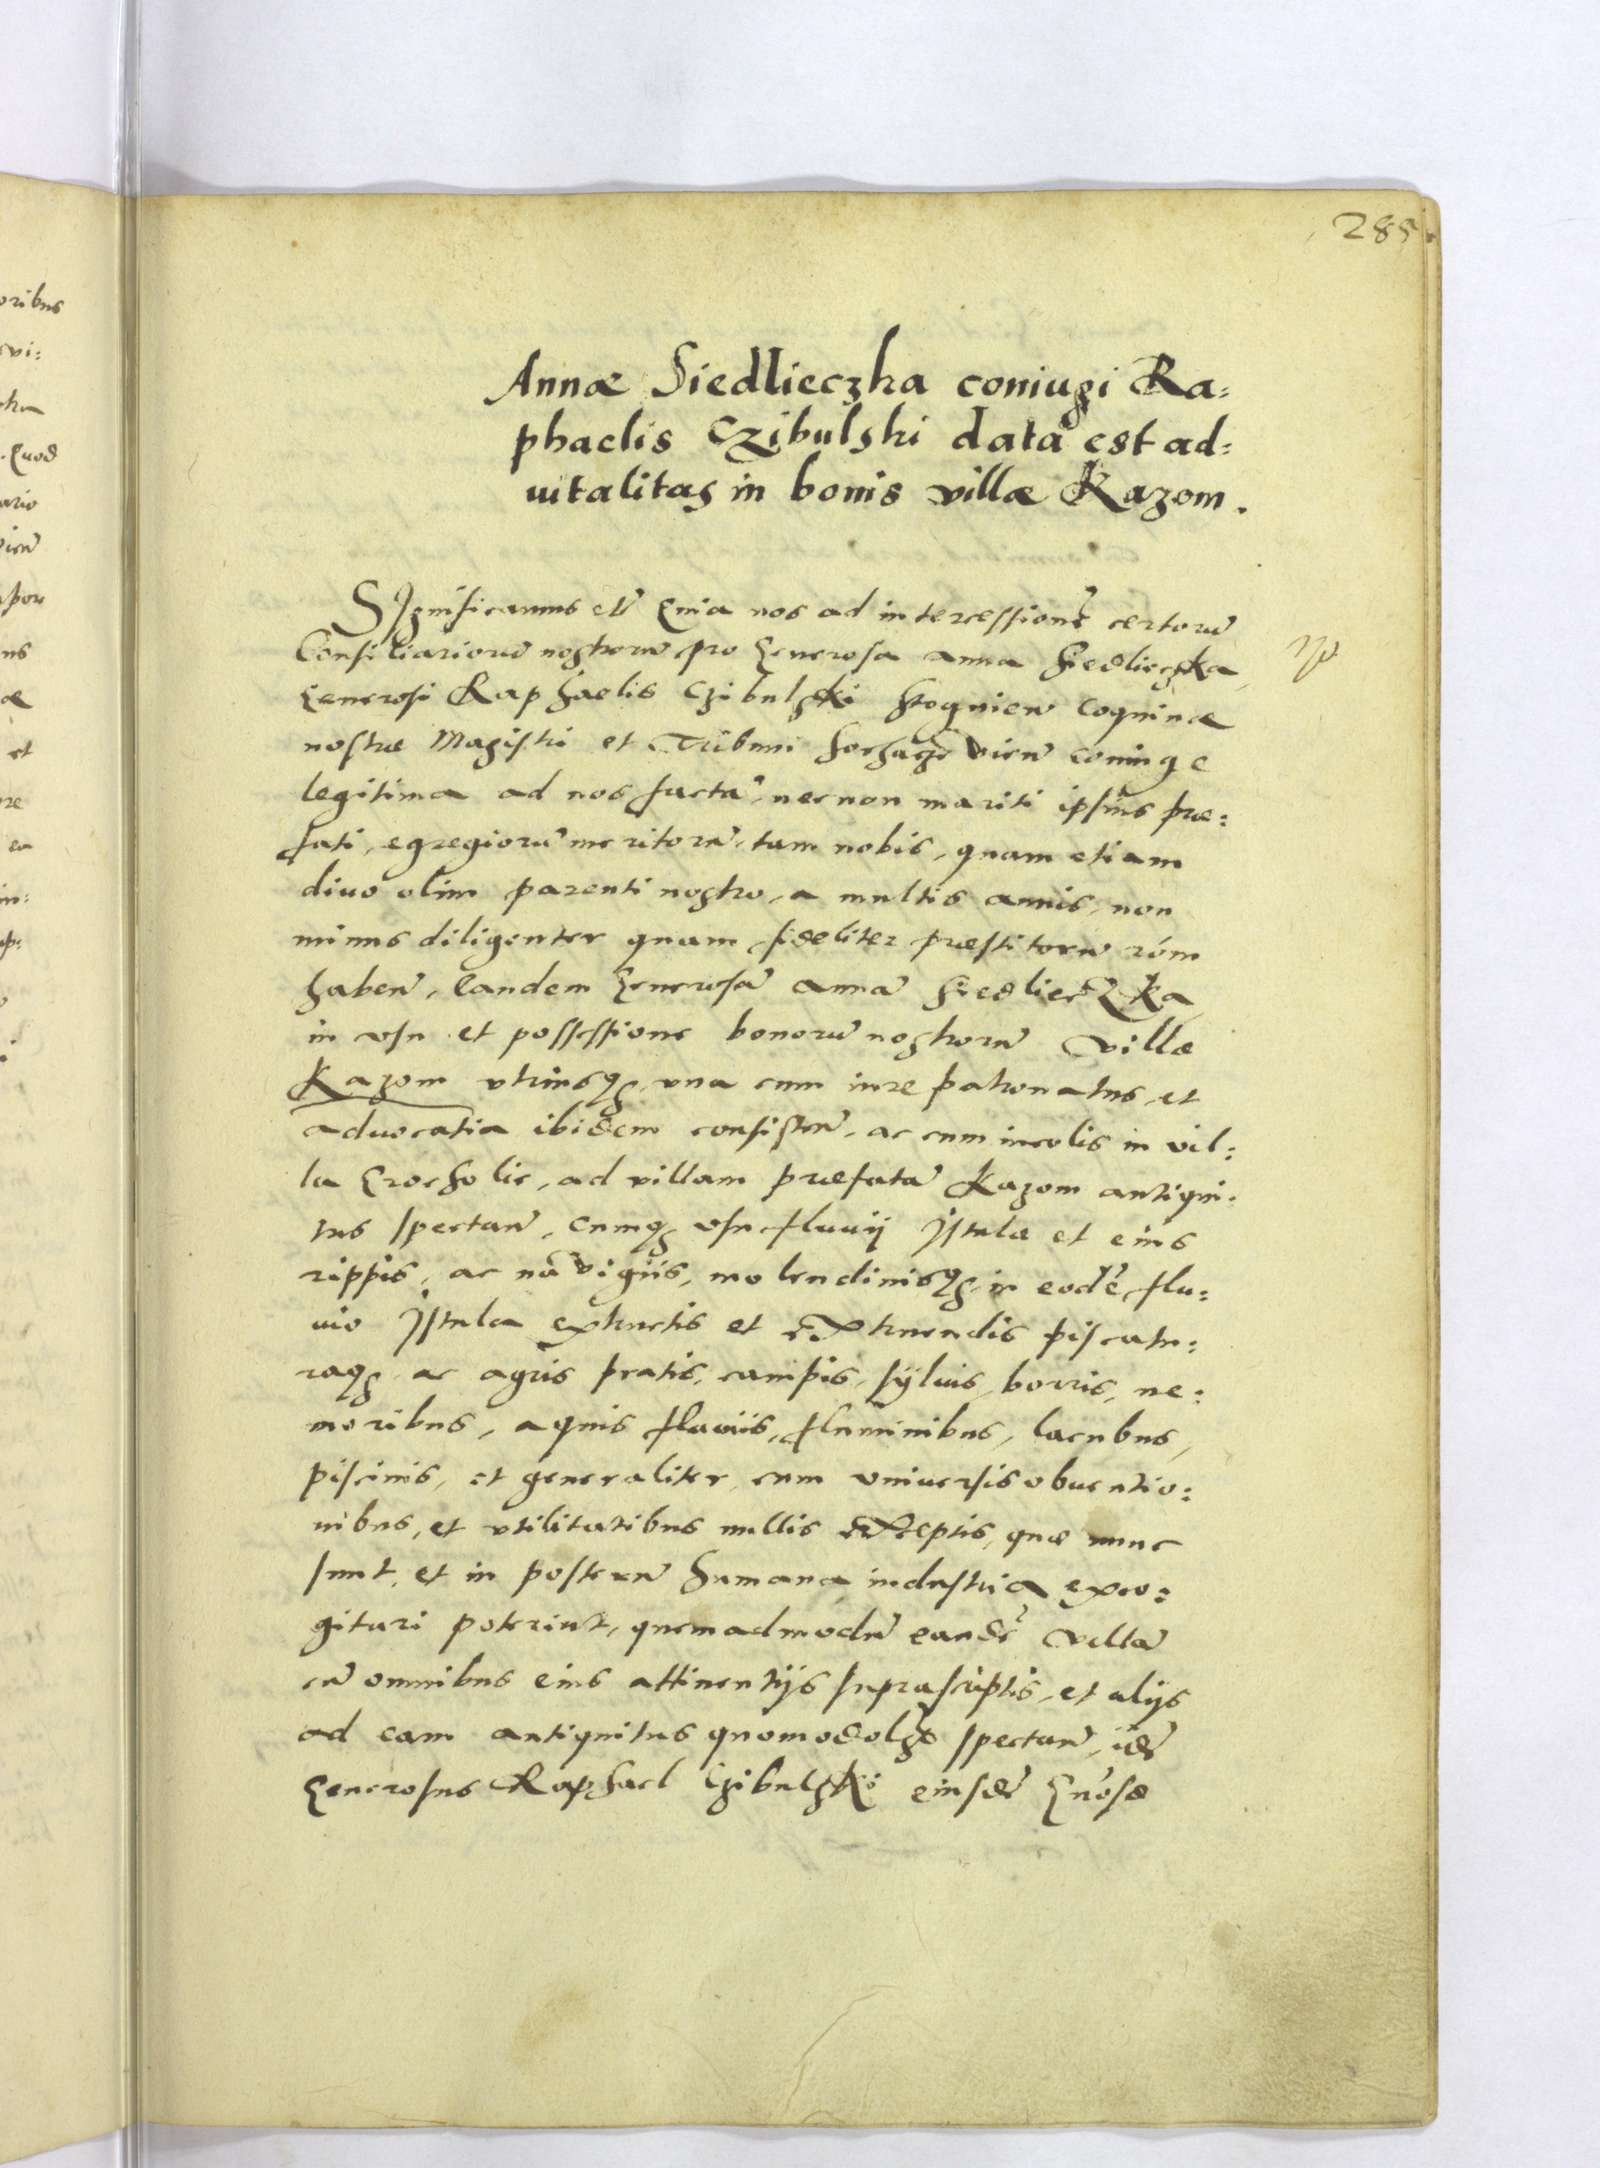 285
Annæ Siedlieczka coniugi Ra-
phaelis Czibulski data est ad-
uitalitas in bonis villæ Kazom.
SIgnificamus etc̃ Quia nos ad intercessionẽ certorũ
Consiliariorũ nostrorũ pro Generosa Anna Siedlieczka
Generosi Raphaelis Czibulski coquinæ
nostræ Magistri et Tribuni Sochaczeviен̃ coniuge
legitima ad nos factã, necnon mariti ipsius præ-
fati, egregiorũ meritorũ, tam nobis, quam etiam
diuo olim parenti nostro, a multis annis, non
minus diligenter quam fideliter præstitorũ rõm
haben̄, Eandem Generosã Annã Siedlieczka
in vsu et possessione bonorũ nostrorũ villæ
Kazom vtriusq3, vna cum iure patronatus, et
aduocatia ibidem consisten̄, ac cum incolis in vil-
la Grocholie, ad villam præfatã Kazom antiqui-
tus spectan̄, cumq3 vsu fluuij Istulæ et eius
rippis, ac nauigiis, molendinisq3 in eodẽ flu-
uio Istula extructis et extruendis piscatu-
raq3 ac agris pratis, campis, syluis, borris, ne-
moribus, aquis fluuiis, fluminibus, lacubus,
piscinis, et generaliter cum vniuersis obuentio-
nibus, et vtilitatibus nullis exceptis, quæ nunc
sunt, et in posterũ humana industria exco-
gitari poterint, quemadmodũ eandẽ villã
cũ omnibus eius attinentijs suprascriptis, et alijs
ad eam antiquitus quomodolꝫ spectan̄, idẽ
Generosus Raphael Czibulski eiusdẽ Gñosæ